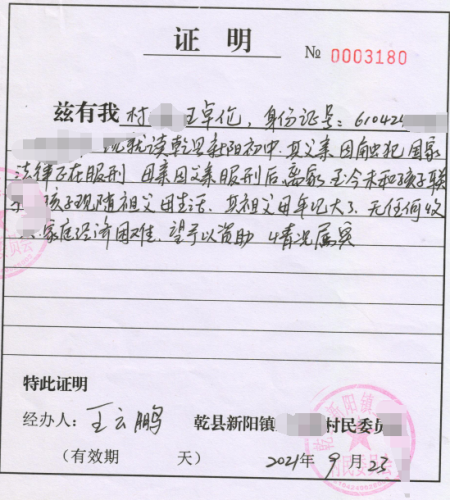 证 明
№ 0003180
兹有我村 王卓伦，身份证号：610424
现就读乾县新阳初中，其父亲因触犯国家
法律正在服刑 母亲因父亲服刑后离家至今未和孩子联
孩子现随祖父母生活，其祖父母年纪大了，无任何收
家庭经济困难，望予以资助 以情况属实
特此证明
经办人：王云鹏 乾县新阳镇 村民委员
（有效期 天） 2021年 9月25